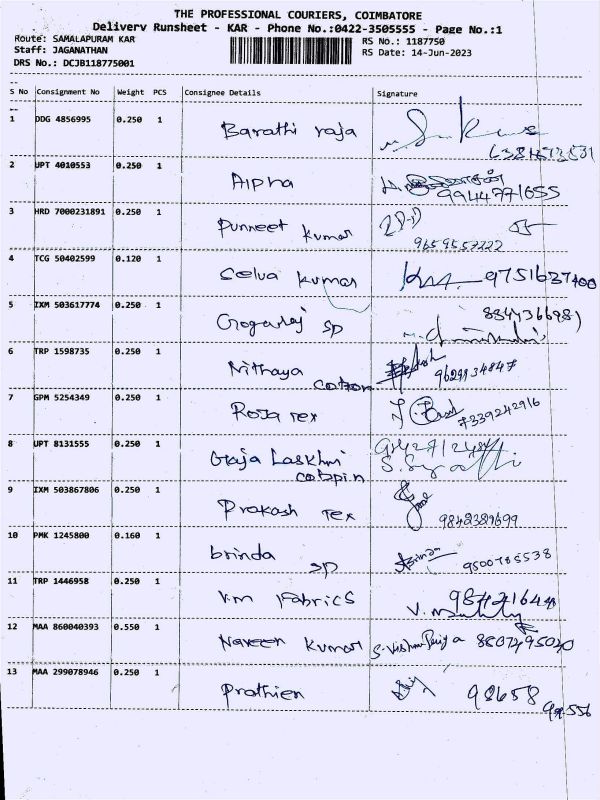 THE PROFESSIONAL COURIERS, COIMBATORE
Delivery Runsheet - KAR - Phone No.:0422-3505555 - Page No.:1
Route: SAMALAPURAM KAR RS No.: 1187750
Staff: JAGANATHAN RS Date: 14-Jun-2023
DRS No.: DCJB118775001
S No Consignment No Weight PCS Consignee Details Signature
1 DDG 4856995 0.250 1 Barathi raja
2 UPT 4010553 0.250 1 Alpha 9944771655
3 HRD 7000231891 0.250 1 Punneet Kumar
9659557222
4 TCG 50402599 0.120 1 Selva Kumar 9751637400
5 IXM 503617774 0.250 1 sp
6 TRP 1598735 0.250 1 Nithaya
cotton
7 GPM 5254349 0.250 1 Roja Tex 7339242916
8 UPT 8131555 0.250 1 Gaja Laskhmi
9 IXM 503867806 0.250 1 Prakash Tex
10 PMK 1245800 0.160 1 brinda 9500785538
sp
11 TRP 1446958 0.250 1 V.M Fabrics
12 MAA 860040393 0.550 1 Naveen Kumar
13 MAA 299078946 0.250 1 Prathien 98658